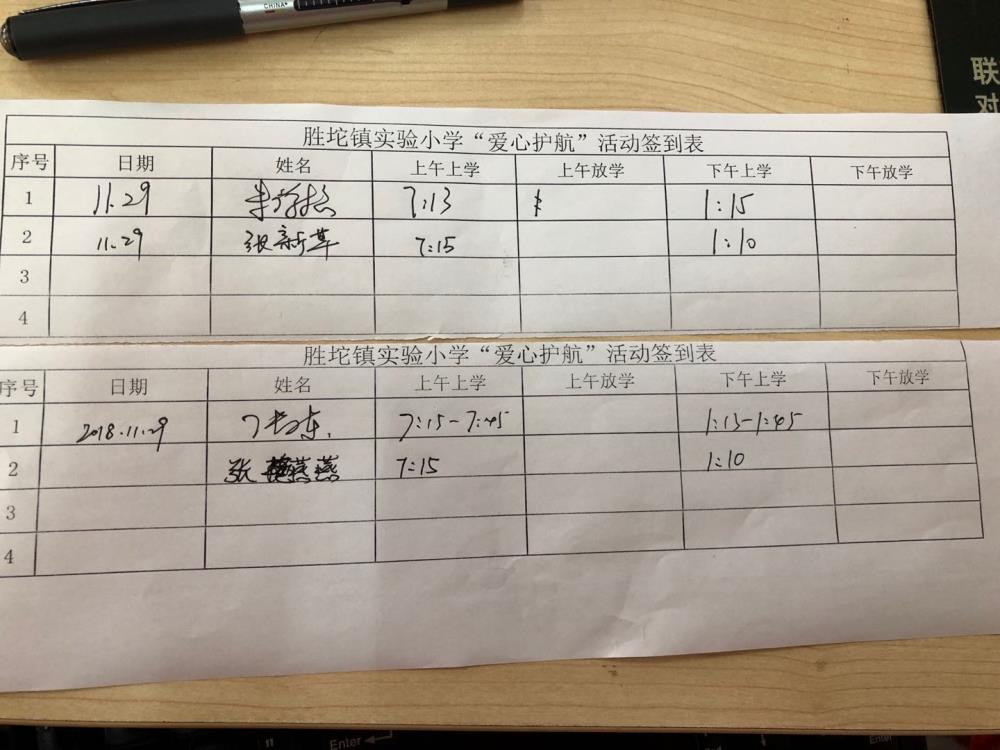 CHINA
联
对
胜坨镇实验小学“爱心护航”活动签到表
序号 日期 姓名 上午上学 上午放学 下午上学 下午放学
1 11.29 7:13 1:15
2 11.29 张新草 7:15 1:10
3
4
胜坨镇实验小学“爱心护航”活动签到表
序号 日期 姓名 上午上学 上午放学 下午上学 下午放学
1 2018.11.29 7:15-7:45 1:15-1:45
2 张 燕 7:15 1:10
3
4
Enter